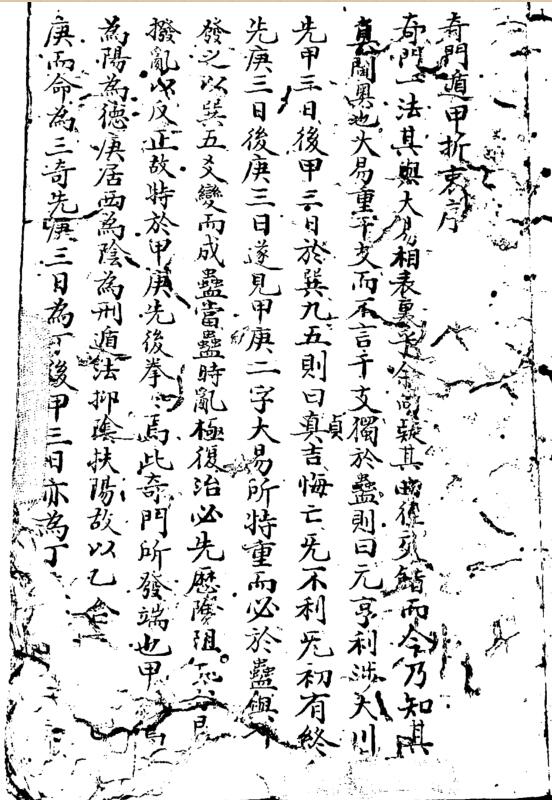 奇門遁甲折衷序
奇門一法其與大易相表裏乎余嘗疑其曲徑而今乃知其
真閫奧也大易重干支而不言干支獨於蠱則曰元亨利涉大川
先甲三日後甲三日於巽九五則曰貞吉悔亡旡不利旡初有終
先庚三日後庚三日遂見甲庚二字大易所特重而必於蠱與
發之以巽五爻變而成蠱當蠱時亂極復治必先歷險阻
撥亂以反正故特於甲庚先後拳〻焉此奇門所發端也甲
為陽為德庚居西為陰為刑遁法抑陰扶陽故以乙合
庚而命為三奇先庚三日為丁後甲三日亦為丁